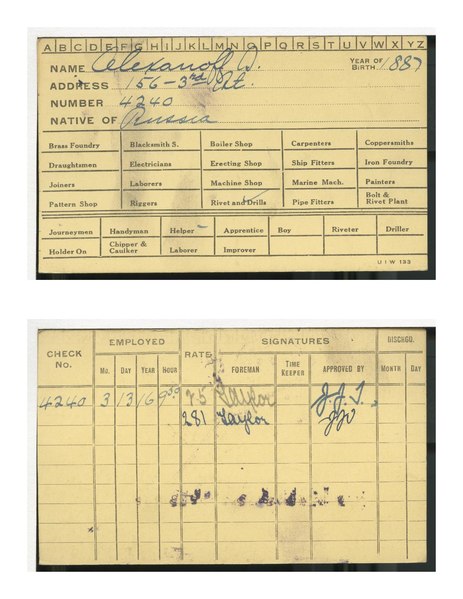 A B C D E F G H I J K L M N O P Q R S T U V W X Y Z
NAME Alexanoff D. YEAR OF BIRTH 1887
ADDRESS 156-3rd St.
NUMBER 4240
NATIVE OF Russia
Brass Foundry Blacksmith S. Boiler Shop Carpenters Coppersmiths
Draughtsmen Electricians Erecting Shop Ship Fitters Iron Foundry
Joiners Laborers Machine Shop Marine Mach. Painters
Pattern Shop Riggers Rivet and Drills Pipe Fitters Bolt & Rivet Plant
Journeymen Handyman Helper Apprentice Boy Riveter Driller
Holder On Chipper & Caulker Laborer Improver
U I W 133
CHECK No. EMPLOYED RATE SIGNATURES DISCHGD.
Mo. DAY YEAR HOUR FOREMAN TIME KEEPER APPROVED BY MONTH DAY
4240 3 13 16 25 Taylor J.J.T.
281 Taylor